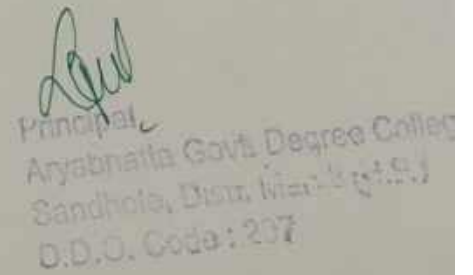 Principal
Aryabhatta Govt. Degree Colleg
Sandhole, Distt. Mandi (H.P.)
D.D.O. Code : 207